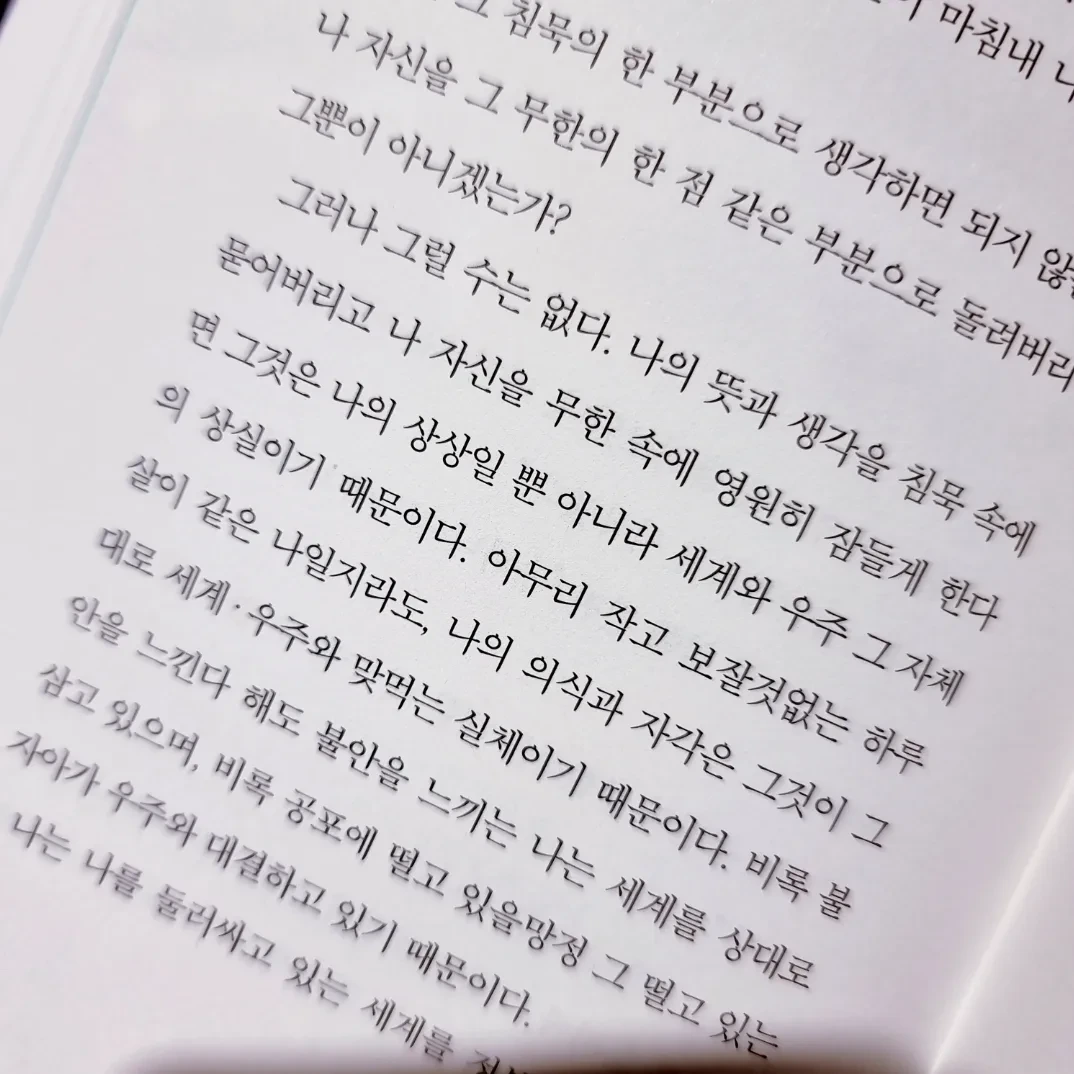 마침내
그 침묵의 한 부분으로 생각하면 되지
나 자신을 그 무한의 한 점 같은 부분으로 돌려버리
그뿐이 아니겠는가?
그러나 그럴 수는 없다. 나의 뜻과 생각을 침묵 속에
묻어버리고 나 자신을 무한 속에 영원히 잠들게 한다
면 그것은 나의 상상일 뿐 아니라 세계와 우주 그 자체
의 상실이기 때문이다. 아무리 작고 보잘것없는 하루
살이 같은 나일지라도, 나의 의식과 자각은 그것이 그
대로 세계·우주와 맞먹는 실체이기 때문이다. 비록 불
안을 느낀다 해도 불안을 느끼는 나는 세계를 상대로
삼고 있으며, 비록 공포에 떨고 있을망정 그 떨고 있는
자아가 우주와 대결하고 있기 때문이다.
나는 나를 둘러싸고 있는 세계를